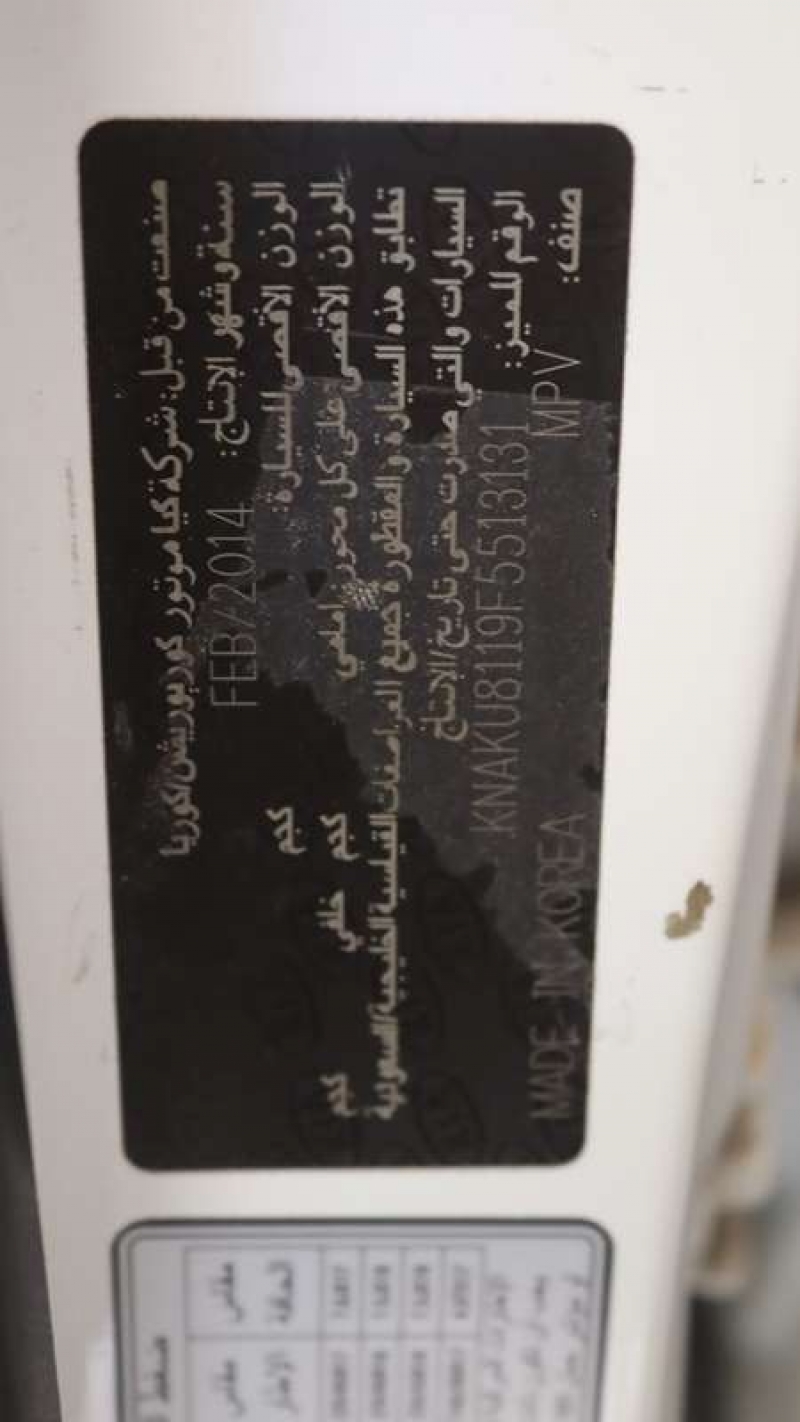 صنعت من قبل: شركة كيا موتور كوربوريشن/كوريا
سنة وشهر الإنتاج: FEB/2014
الوزن الاقصى للسيارة: كجم
الوزن الاقصى على كل محور: امامي كجم خلفي كجم
تطابق هذه السيارة والمقطورة جميع المراصفات القياسية الخليجية/السعودية
السيارات والتي صدرت حتى تاريخ/الإنتاج
الرقم المميز: KNAKU8119F5513131
صنف: MPV MADE-IN KOREA
ضغط
مقاس مقاس
الحافة الإطار